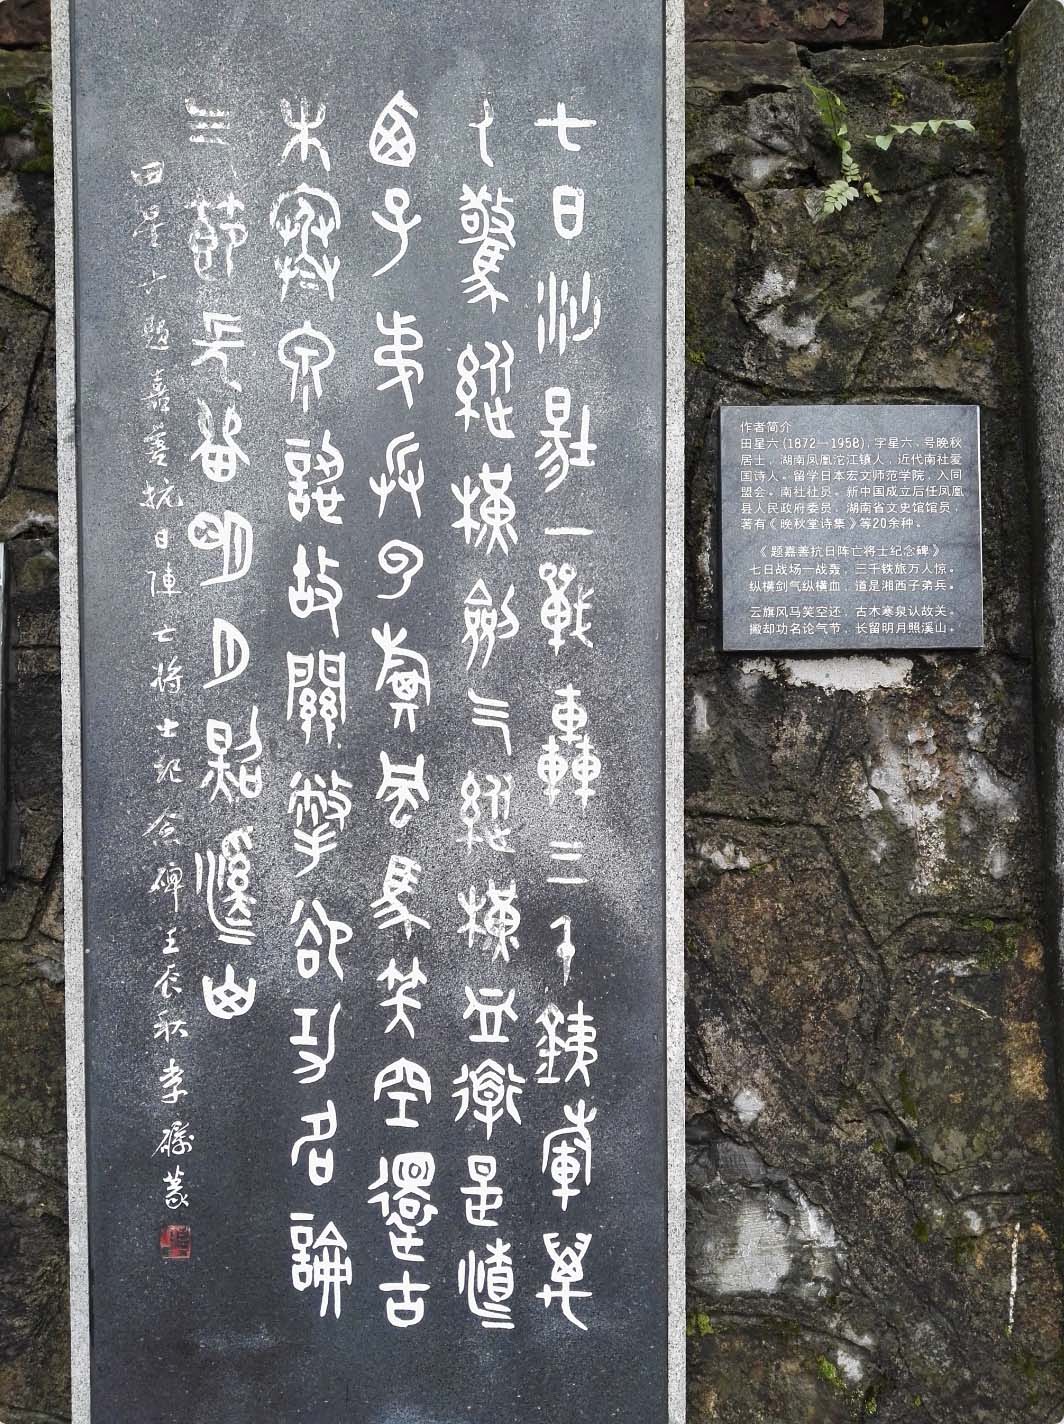 七日沙場一戰轟三千銕軍萬
人驚縱橫劍气縱橫血道是湘
西子弟兵雲旗風馬笑空還古
木寒泉認故關撆卻功名論
气節長留明月照溪山
田星六題嘉善抗日陣亡將士紀念碑壬辰秋李礪篆
作者简介
田星六(1872—1958),字星六,号晚秋
居士,湖南凤凰沱江镇人,近代南社爱
国诗人。留学日本宏文师范学院,入同
盟会、南社社员。新中国成立后任凤凰
县人民政府委员,湖南省文史馆馆员,
著有《晚秋堂诗集》等20余种。
《题嘉善抗日阵亡将士纪念碑》
七日战场一战轰,三千铁旅万人惊。
纵横剑气纵横血,道是湘西子弟兵。
云旗风马笑空还,古木寒泉认故关。
撇却功名论气节,长留明月照溪山。